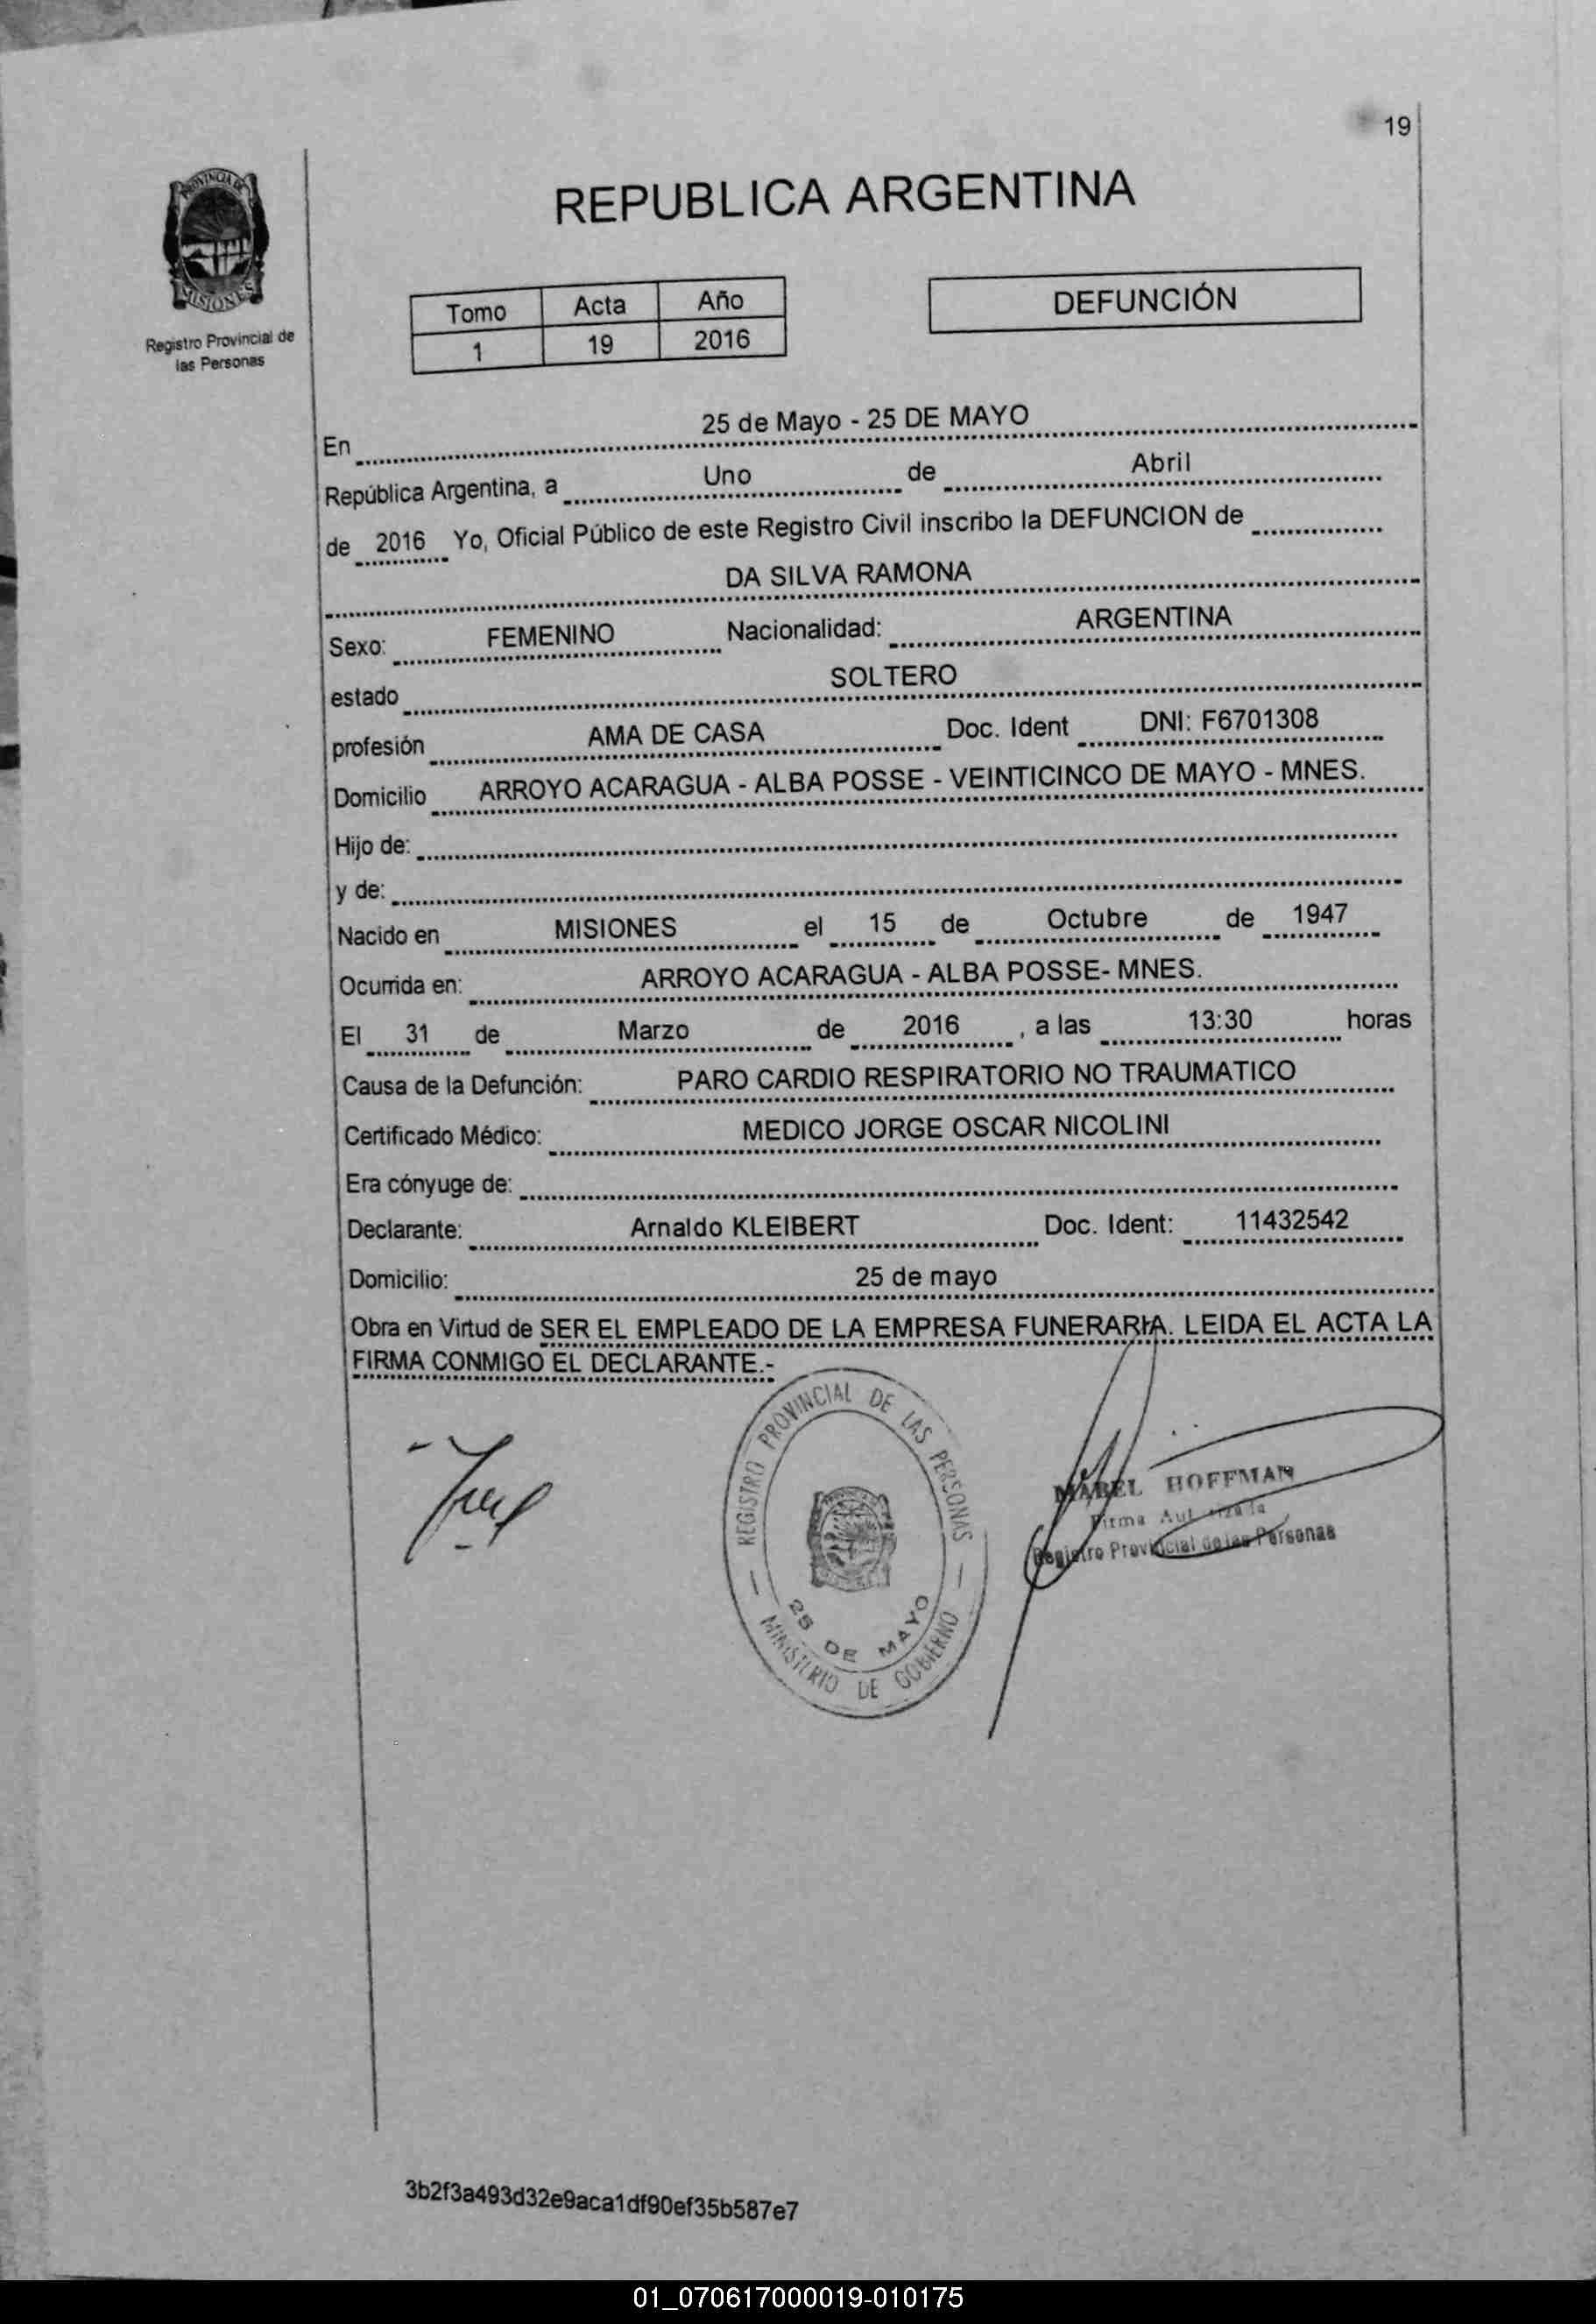 19
PROVINCIA DE
MISIONES
Registro Provincial de
las Personas
REPUBLICA ARGENTINA
Tomo Acta Año
1 19 2016
DEFUNCIÓN
En 25 de Mayo - 25 DE MAYO
República Argentina, a Uno de Abril
de 2016 Yo, Oficial Público de este Registro Civil inscribo la DEFUNCION de
DA SILVA RAMONA
Sexo: FEMENINO Nacionalidad: ARGENTINA
estado SOLTERO
profesión AMA DE CASA Doc. Ident DNI: F6701308
Domicilio ARROYO ACARAGUA - ALBA POSSE - VEINTICINCO DE MAYO - MNES.
Hijo de:
y de:
Nacido en MISIONES el 15 de Octubre de 1947
Ocurrida en: ARROYO ACARAGUA - ALBA POSSE- MNES.
El 31 de Marzo de 2016 , a las 13:30 horas
Causa de la Defunción: PARO CARDIO RESPIRATORIO NO TRAUMATICO
Certificado Médico: MEDICO JORGE OSCAR NICOLINI
Era cónyuge de:
Declarante: Arnaldo KLEIBERT Doc. Ident: 11432542
Domicilio: 25 de mayo
Obra en Virtud de SER EL EMPLEADO DE LA EMPRESA FUNERARIA. LEIDA EL ACTA LA
FIRMA CONMIGO EL DECLARANTE.-
REGISTRO PROVINCIAL DE LAS PERSONAS
25 DE MAYO
MINISTERIO DE GOBIERNO
MABEL HOFFMAN
Firma Autorizada
Registro Provincial de las Personas
3b2f3a493d32e9aca1df90ef35b587e7
01_070617000019-010175